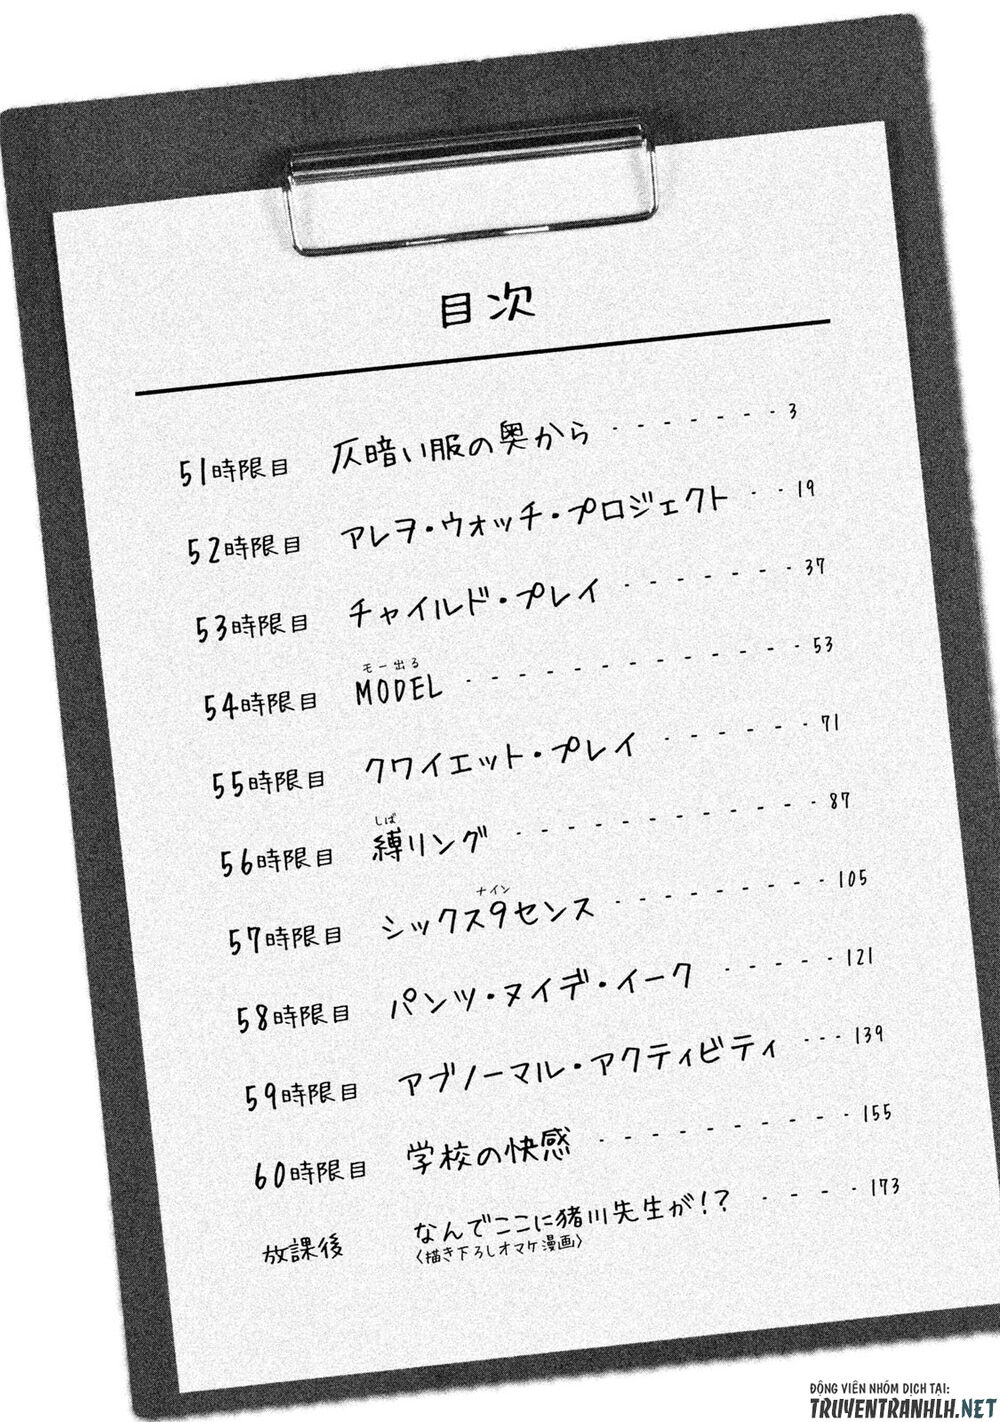 目次
51時限目 仄暗い服の奥から ------- 3
52時限目 アレヲ・ウォッチ・プロジェクト --- 19
53時限目 チャイルド・プレイ ------- 37
モー出る
54時限目 MODEL ------------- 53
55時限目 クワイエット・プレイ ------ 71
しば
56時限目 縛リング ------------ 87
ナイン
57時限目 シックス9センス --------- 105
58時限目 パンツ・ヌイデ・イーク ----- 121
59時限目 アブノーマル・アクティビティ --- 139
60時限目 学校の快感 ---------- 155
放課後 なんでここに猪川先生が!? ---- 173
〈描き下ろしオマケ漫画〉
ĐỘNG VIÊN NHÓM DỊCH TẠI:
TRUYENTRANHLH.NET